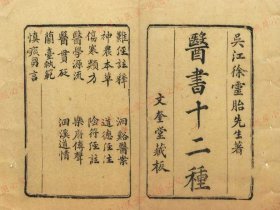 吳江徐靈胎先生著
醫書十二種
文奎堂藏板
難經註釋　洄谿醫案
神農本草　道德經註
傷寒類方　陰符經註
醫學源流　樂府傳聲
醫貫砭　洄溪道情
蘭臺軌範
慎疾芻言